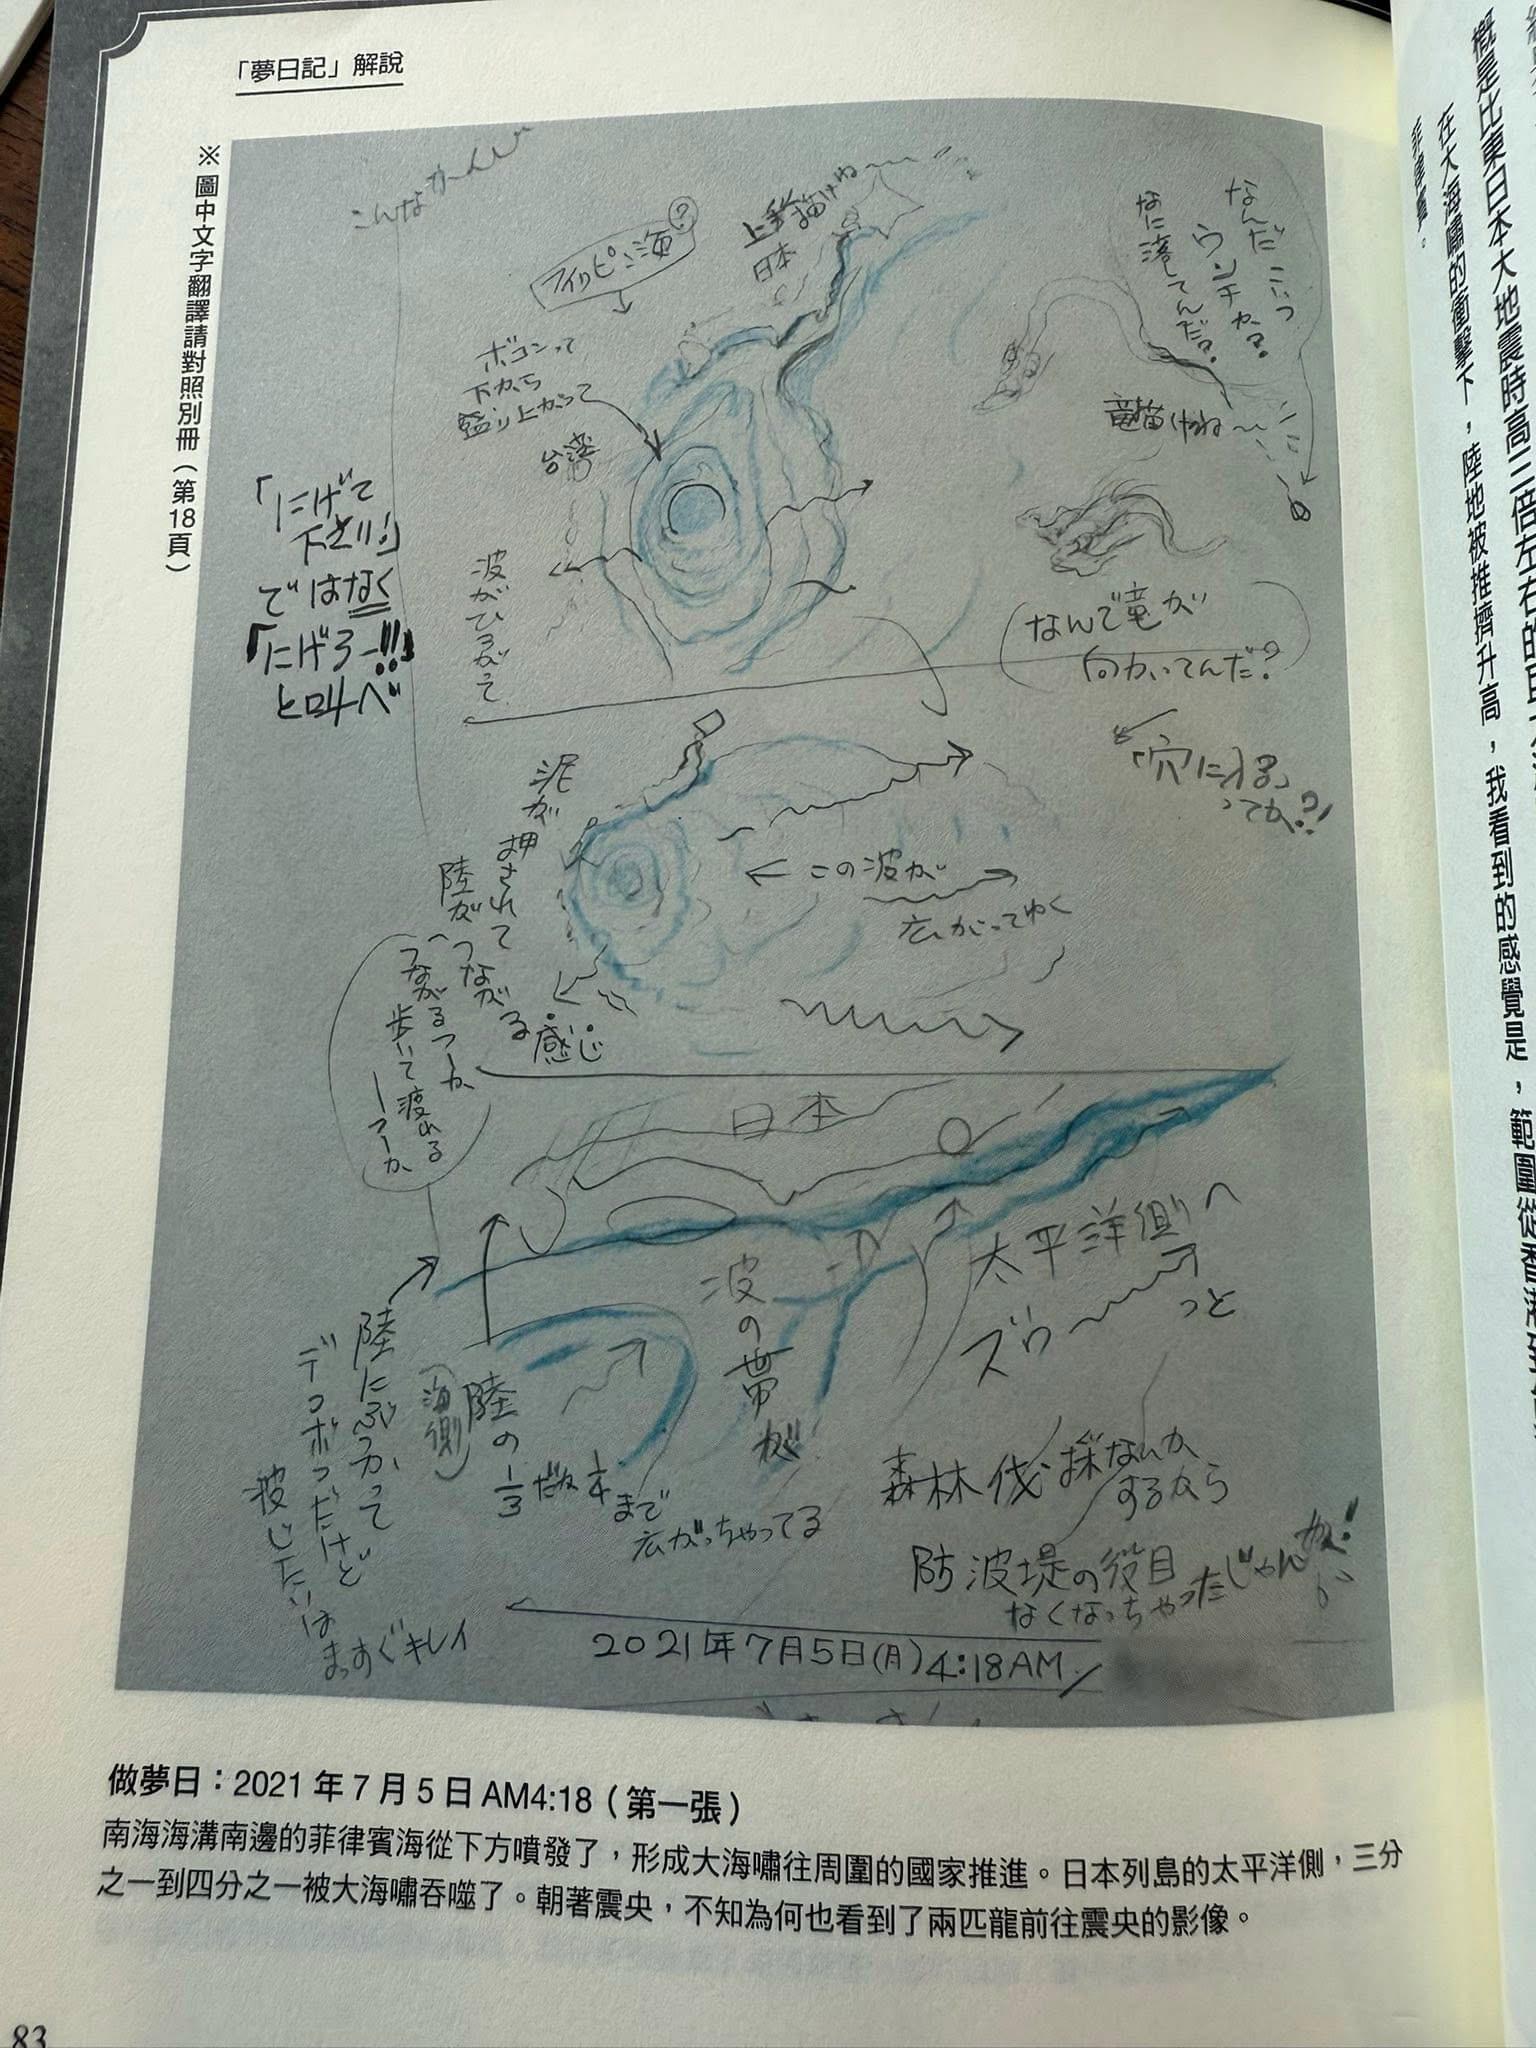 「夢日記」解說
※圖中文字翻譯請對照別冊（第18頁）
こんなかんじ
フィリピン海?
上手く描けね～
日本
なんだこいつ
ウンチか?
なに落してんだ?
ボコンって
下から
盛り上がって
台湾
竜描けね～
「にげて
下さい!」
ではなく
「にげろー!!!」
と叫べ
波がひろがって
なんで竜が
向かってんだ?
「穴に入る」
ってか?!
泥が押されて
陸がつながる感じ
つながるつーか
歩いて渡れる
つーか
この波が
広がってゆく
日本
太平洋側へ
ズウ～～っと
波の帯が
陸にぶつかって
デコボコだけど
波じたいは
まっすぐキレイ
(海側)
陸の1/3だな 1/4まで
広がっちゃってる
森林伐採なんか
するから
防波堤の役目
なくなっちゃったじゃんか!
2021年7月5日(月)4:18AM
做夢日：2021年7月5日AM4:18（第一張）
南海海溝南邊的菲律賓海從下方噴發了，形成大海嘯往周圍的國家推進。日本列島的太平洋側，三分
之一到四分之一被大海嘯吞噬了。朝著震央，不知為何也看到了兩匹龍前往震央的影像。
83
概是比東日本大地震時高三倍左右的
在大海嘯的衝擊下，陸地被推擠升高，我看到的感覺是，範圍從香港到
菲律賓。